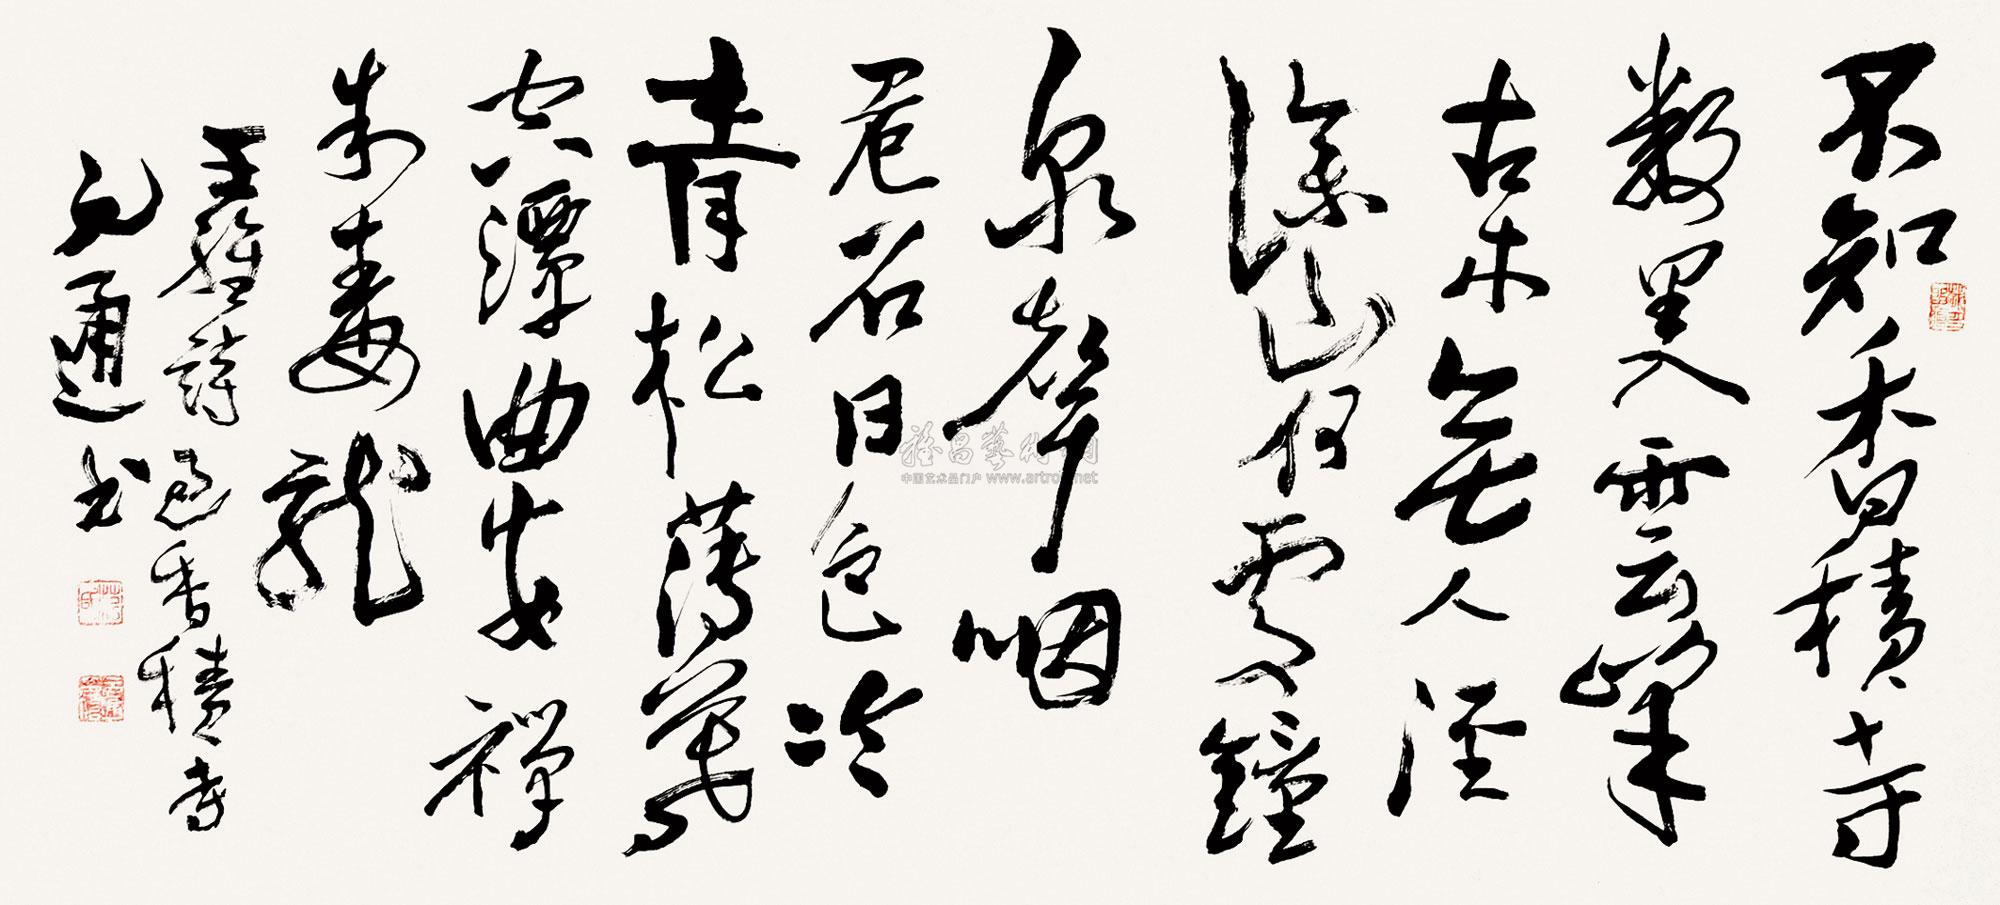 不知香積寺
數里入雲峰
古木無人徑
深山何處鐘
泉聲咽
危石日色冷
青松薄暮
空潭曲安禪
制毒龍
王維詩過香積寺
通书
雅昌藝術网
中国艺术品门户 www.artron.net